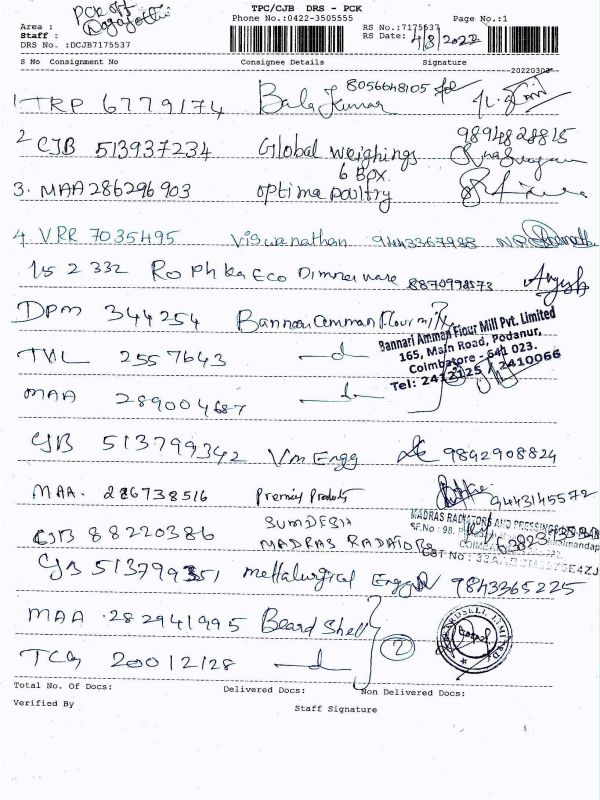 PCK off
TPC/CJB DRS - PCK
Area :
Phone No.:0422-3505555
Page No.:1
Staff :
RS No.:7175537
DRS No. :DCJB7175537
RS Date: 4/3/2022
S No Consignment No Consignee Details Signature
20220303
1 TRP 6779174 Bala Kumar 8056648105
2 CJB 513937234 Global weighings 9894828815
6 Box.
3. MAA 286296903 optima poultry
4. VRR 7035495 Viswanathan 9443367988
152332 Ro Ph ka Eco Dinnerware 8870998573
DPM 344254 Bannari Amman Flour mill
Bannari Amman Flour Mill Pvt. Limited
165, Main Road, Podanur,
Coimbatore - 641 023.
Tel: 2413125 / 2410066
TVL 2557643 —d—
MAA 289004687 —d—
CJB 513799342 Vm Engg 9842908824
MAA. 286738516 Premier Products 9443145572
MADRAS RADIATORS AND PRESSING
SF.No : 98,
CJB 88220386 SUMDESH
MADRAS RADIATORS
CJB 513799351 metallurgical Engg 9843365225
MAA 282941995 Beard Shell
TCG 20012128 —d— 2
Total No. Of Docs: Delivered Docs: Non Delivered Docs:
Verified By
Staff Signature